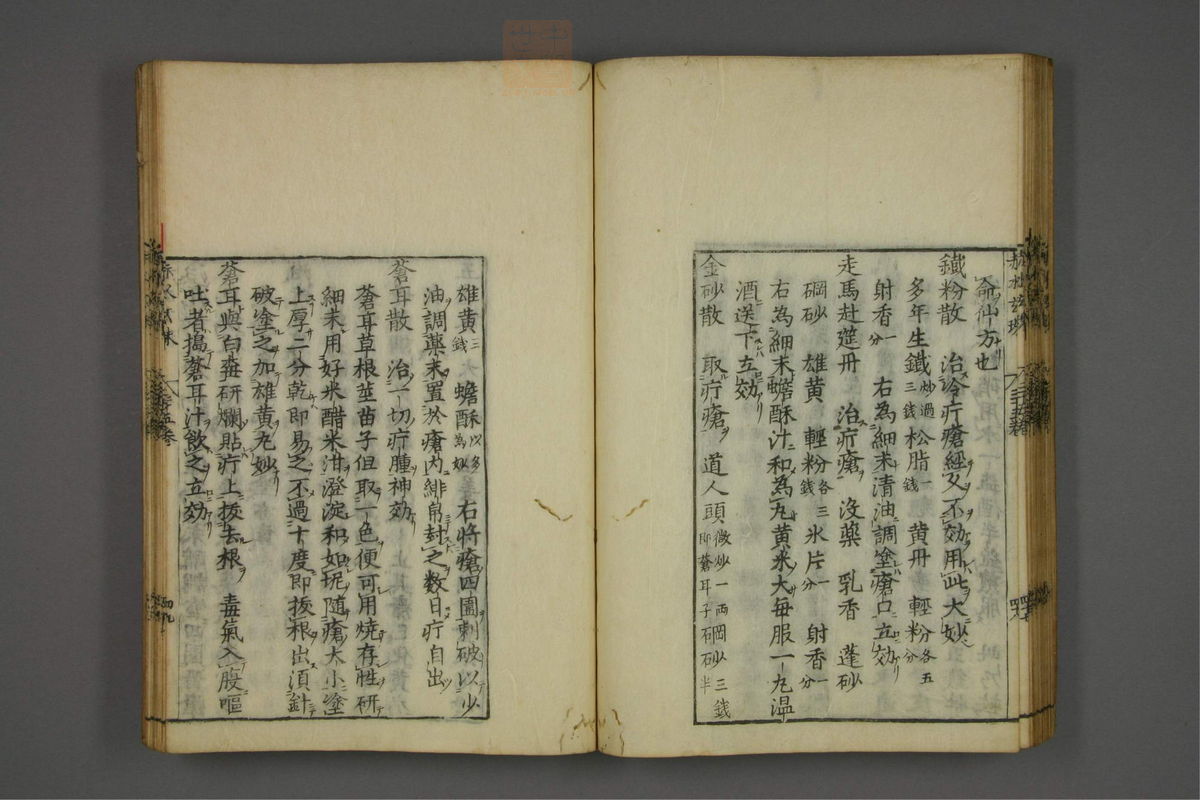 侖仙方也
鐵粉散　治冷疔瘡經久不効用此大妙
多年生鐵炒過三錢　松脂一錢　黄丹　輕粉各五分
射香一分　右為細末清油調塗瘡口立効
走馬赴筵丹　治疔瘡　没藥　乳香　蓬砂
硇砂　雄黄　輕粉各三錢　氷片一分　射香一分
右為細末蟾酥汁和為丸黄米大毎服一丸温
酒送下立効
金砂散　取疔瘡　道人頭微炒一両即蒼耳子　硇砂三錢　石砂半
雄黄三錢　蟾酥以多為妙　右將瘡四圍刺破以少
油調藥末置於瘡内緋帛封之数日疔自出
蒼耳散　治一切疔腫神効
蒼耳草根莖苗子但取一色便可用燒存性研
細末用好米醋米泔澄淀和如坭随瘡大小塗
上厚二分乾即易之不過十度即抜根出須針
破塗之加雄黄尤妙
蒼耳與白𣑱研爛貼疔上抜去根　毒氣入腹嘔
吐者搗蒼耳汁飲之立効